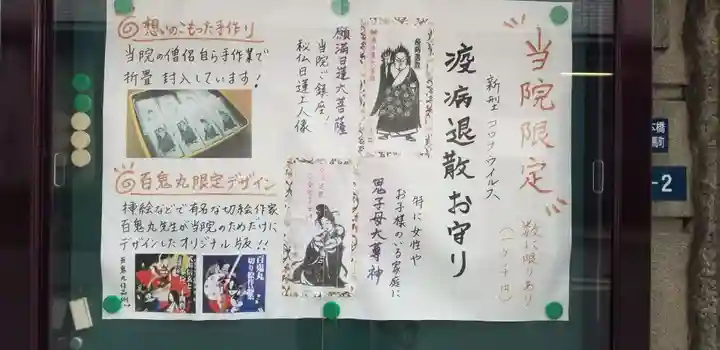 当院限定
数に限りあり
(一ヶ千円)
新型コロナウイルス
疫病退散お守り
特に女性や
お子様のいる家庭に
鬼子母大尊神
願満日蓮大菩薩
当院ご鎮座、
秘仏日蓮上人像
想いのこもった手作り
当院の僧侶自ら手作業で
折畳 封入しています!
百鬼丸限定デザイン
挿絵などで有名な切絵作家
百鬼丸先生が当院のためだけに
デザインしたオリジナル版!!
百鬼丸作品例
百鬼丸
切り絵作品集
-2